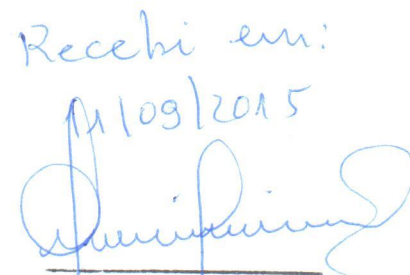 Recebi em:
11/09/2015